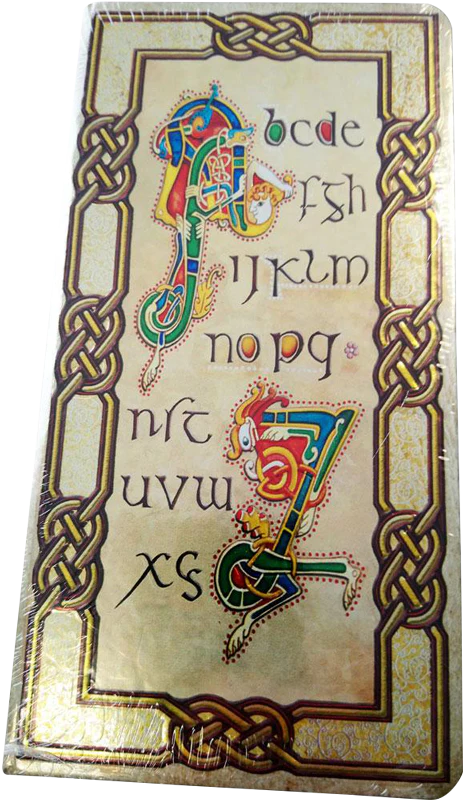 A bcde
fgh
ijklm
nopq
rst
uvw
xy Z